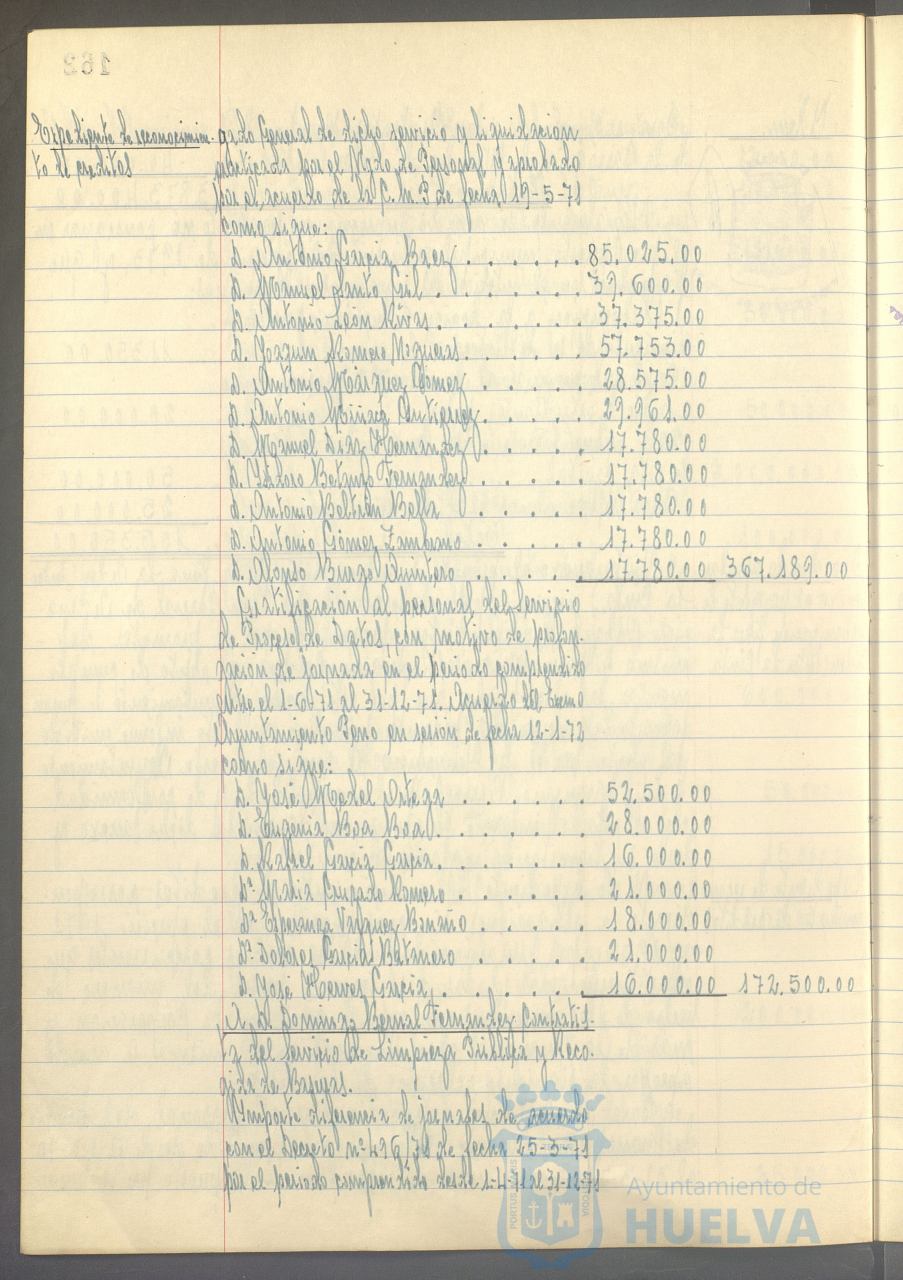 162
Expediente de reconocimien-
to de creditos
gado General de dicho servicio y liquidación
practicada por el Ngdo de Personal y aprobado
por el acuerdo de la C.M.P de fecha 19-5-71
como sigue:
D. Antonio Garcia Baez . . . . . . 85.025.00
D. Manuel Santo Gil . . . . . . 39.600.00
D. Antonio León Rivas . . . . . . 37.375.00
D. Joaquin Romero Nogueras . . . . . 57.753.00
D. Antonio Márquez Gómez . . . . 28.575.00
D. Antonio Antiquez . . . . 29.961.00
D. Manuel Diaz Hernandez . . . . 17.780.00
D. Isidoro Betanzo Fernandez . . . . 17.780.00
D. Antonio Beltrán Bella . . . . 17.780.00
D. Antonio Gómez Zambrano . . . . 17.780.00
D. Alonso Quintero . . . . 17.780.00 367.189.00
Gratificación al personal del Servicio
de Proceso de Datos, con motivo de prolon-
gación de jornada en el periodo comprendido
entre el 1-6-71 al 31-12-71. Acuerdo del Excmo
Ayuntamiento Peno en sesión de fecha 12-1-72
como sigue:
D. José Ortega . . . . . 52.500.00
D. Eugenia Boa Boa . . . . . 28.000.00
D. Rafael Garcia Garcia . . . . . 16.000.00
Dª Maria Romero . . . . . 21.000.00
Dª Esperanza Vazquez . . . . . 18.000.00
Dª Dolores Garcia Batanero . . . . . 21.000.00
D. José Garcia . . . . . 16.000.00 172.500.00
A D. Domingo Bernal Fernandez Contratis-
ta del Servicio de Limpieza Pública y Reco-
gida de Basuras.
Importe diferencia de jornales de acuerdo
con el Decreto nº 496/71 de fecha 25-3-71
por el periodo comprendido desde 1-4-71 al 31-12-71
PORTUS MARIS
CUSTODIA
Ayuntamiento de
HUELVA